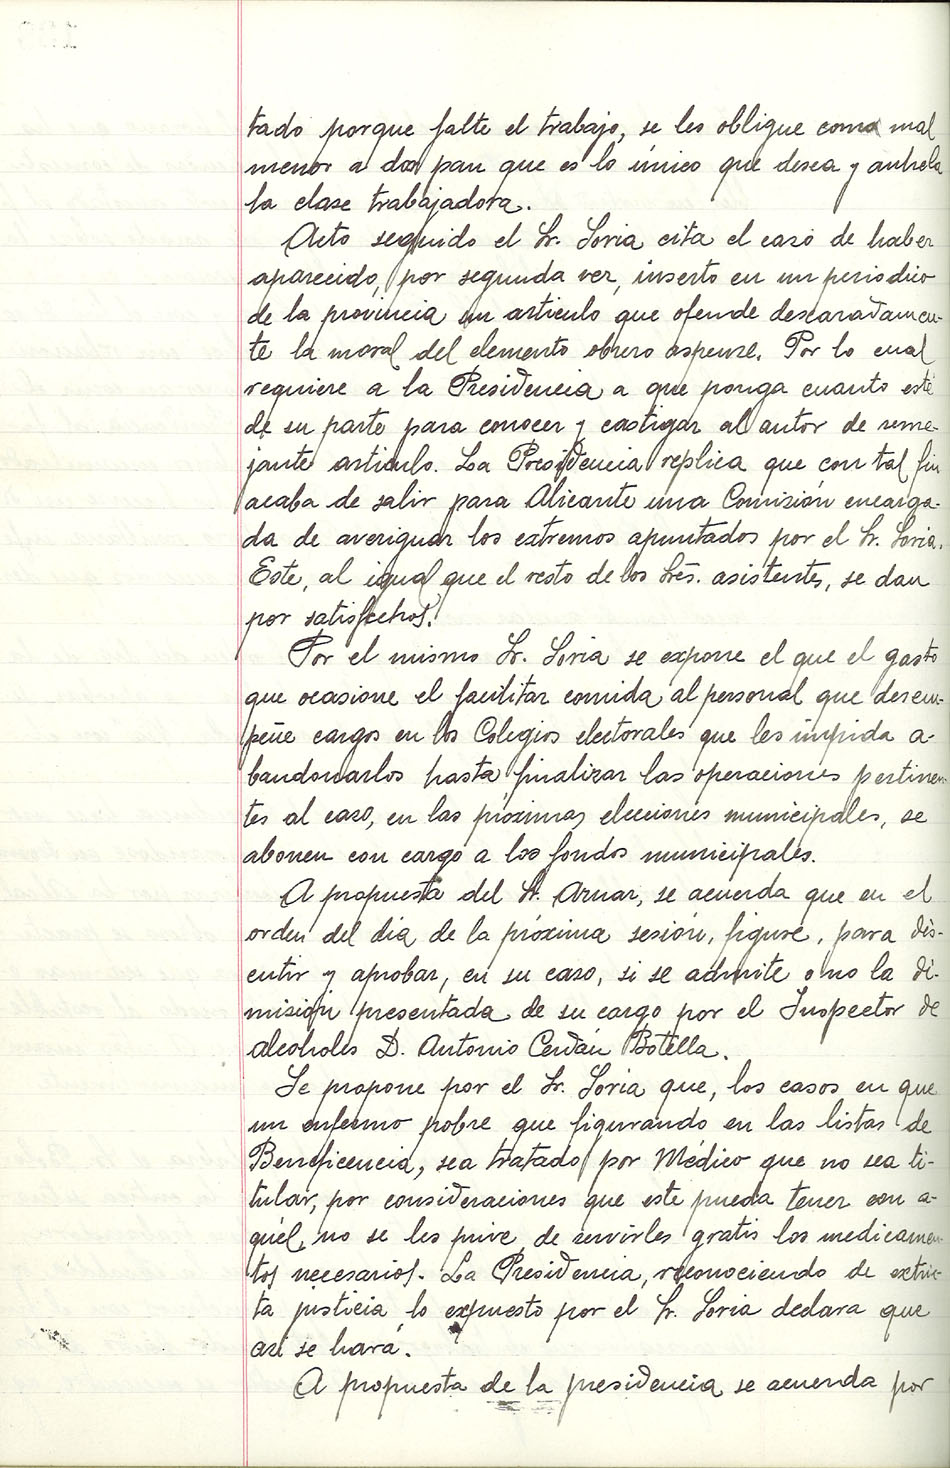 tado porque falte el trabajo, se les obligue como mal
menor a dar pan que es lo único que desea y anhela
la clase trabajadora.
Acto seguido el Sr. Soria cita el caso de haber
aparecido, por segunda vez, inserto en un periodico
de la provincia un articulo que ofende descaradamen-
te la moral del elemento obrero aspense. Por lo cual
requiere a la Presidencia a que ponga cuanto esté
de su parte para conocer y castigar al autor de seme-
jante articulo. La Presidencia replica que con tal fin
acaba de salir para Alicante una Comisión encarga-
da de averiguar los extremos apuntados por el Sr. Soria.
Este, al igual que el resto de los Sres. asistentes, se dan
por satisfechos.
Por el mismo Sr. Soria se expone el que el gasto
que ocasione el facilitar comida al personal que desem-
peñe cargos en los Colegios electorales que les impida a-
bandonarlos hasta finalizar las operaciones pertinen-
tes al caso, en las próximas elecciones municipales, se
abonen con cargo a los fondos municipales.
A propuesta del Sr. Aznar, se acuerda que en el
orden del dia de la próxima sesión, figure, para dis-
cutir y aprobar, en su caso, si se admite o no la di-
misión presentada de su cargo por el Inspector de
alcoholes D. Antonio Cerdán Botella.
Se propone por el Sr. Soria que, los casos en que
un enfermo pobre que figurando en las listas de
Beneficencia, sea tratado por Médico que no sea ti-
tular, por consideraciones que este pueda tener con a-
quél, no se les prive de servirles gratis los medicamen-
tos necesarios. La Presidencia, reconociendo de extric-
ta justicia lo expuesto por el Sr. Soria declara que
así se hará.
A propuesta de la presidencia se acuerda por